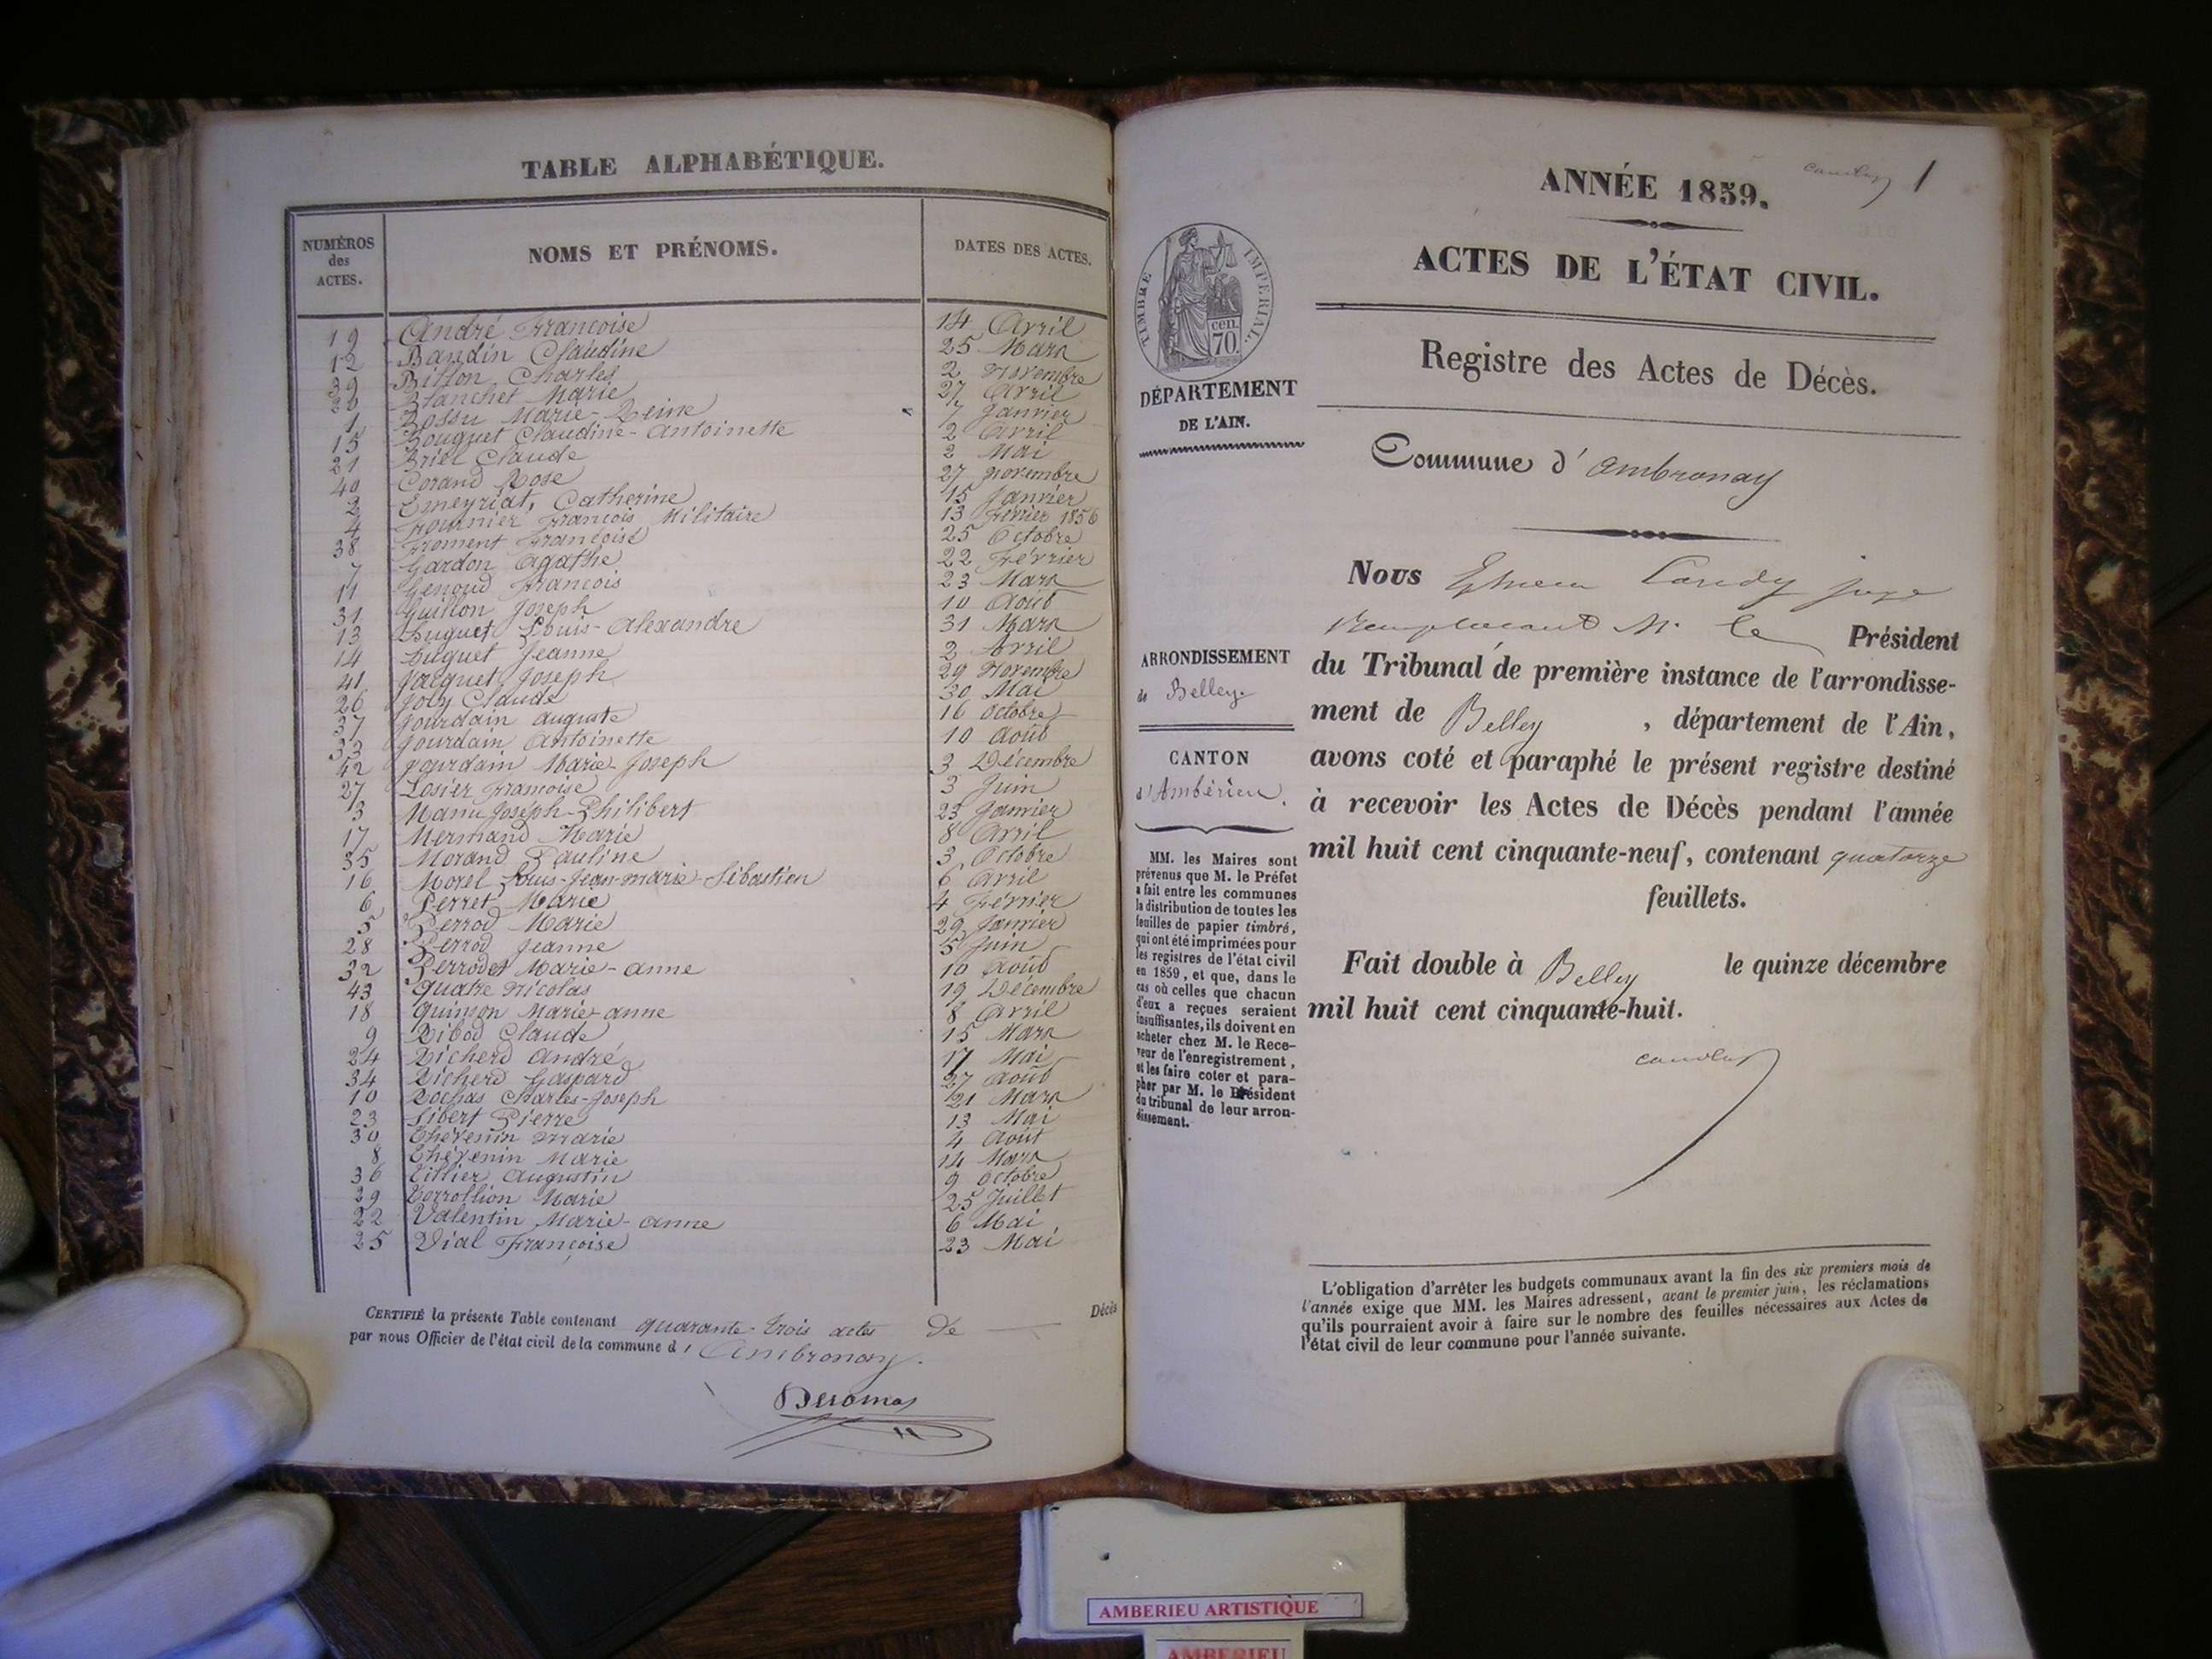 TABLE ALPHABÉTIQUE.
NUMÉROS des ACTES.
NOMS ET PRÉNOMS.
DATES DES ACTES.
19 André Françoise 14 Avril
12 Baudin Claudine 25 Mars
39 Billon Charles 2 Novembre
20 Blanchet Marie 27 Avril
1 Bossu Marie-Reine 7 Janvier
15 Bouquet Claudine-Antoinette 2 Avril
21 Briel Claude 2 Mai
40 Corand Rose 27 novembre
2 Emeyriat, Catherine 15 Janvier
4 Fournier François Militaire 13 Février 1856
38 Froment Françoise 25 Octobre
7 Gardon Agathe 22 Février
11 Genoud François 23 Mars
31 Guillon Joseph 10 Août
13 Huguet Louis-Alexandre 31 Mars
14 Huguet Jeanne 2 Avril
41 Jacquet Joseph 29 Novembre
26 Joly Claude 30 Mai
37 Jourdain auguste 16 octobre
33 Jourdain Antoinette 10 Août
42 Jourdain Marie-Joseph 3 Décembre
27 Losier Françoise 3 Juin
3 Manu Joseph-Philibert 23 Janvier
17 Mermand Marie 8 Avril
35 Morand Pauline 3 Octobre
16 Morel Louis-Jean-marie-Sébastien 6 Avril
6 Perret Marie 4 Février
5 Perrod Marie 29 Janvier
28 Perrod Jeanne 5 Juin
32 Perrodet Marie-anne 10 Août
43 Quatre Nicolas 19 Décembre
18 Quinson Marie-anne 8 Avril
9 Ribod Claude 15 Mars
24 Richerd André 17 Mai
34 Richerd Gaspard 27 Août
10 Rochas Charles-Joseph 21 Mars
23 Sibert Pierre 13 Mai
30 Thévenin marie 4 Août
8 Thévenin Marie 14 Mars
36 Tillier Augustin 9 Octobre
29 Torrollion Marie 25 Juillet
22 Valentin Marie-anne 6 Mai
25 Vial Françoise 23 Mai
CERTIFIÉ la présente Table contenant quarante-trois actes de Décès
par nous Officier de l'état civil de la commune d'Ambronay.
1
ANNÉE 1859.
ACTES DE L'ÉTAT CIVIL.
TIMBRE IMPÉRIAL.
cen.
70.
DÉPARTEMENT
DE L'AIN.
Registre des Actes de Décès.
Commune d'Ambronay
Nous Candy juge
remplacant M. le Président
du Tribunal de première instance de l'arrondisse-
ment de Belley, département de l'Ain,
avons coté et paraphé le présent registre destiné
à recevoir les Actes de Décès pendant l'année
mil huit cent cinquante-neuf, contenant quatorze
feuillets.
Fait double à Belley le quinze décembre
mil huit cent cinquante-huit.
ARRONDISSEMENT
de Belley.
CANTON
d'Ambérieu.
MM. les Maires sont
prévenus que M. le Préfet
a fait entre les communes
la distribution de toutes les
feuilles de papier timbré,
qui ont été imprimées pour
les registres de l'état civil
en 1859, et que, dans le
cas où celles que chacun
d'eux a reçues seraient
insuffisantes, ils doivent en
acheter chez M. le Rece-
veur de l'enregistrement,
et les faire coter et para-
pher par M. le Président
du tribunal de leur arron-
dissement.
L'obligation d'arrêter les budgets communaux avant la fin des six premiers mois de
l'année exige que MM. les Maires adressent, avant le premier juin, les réclamations
qu'ils pourraient avoir à faire sur le nombre des feuilles nécessaires aux Actes de
l'état civil de leur commune pour l'année suivante.
AMBERIEU ARTISTIQUE
AMBERIEU